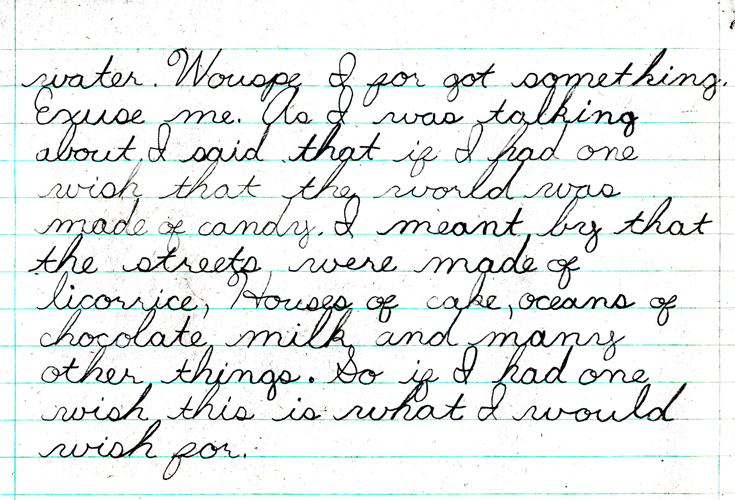 water. Wouspe I for got something.
Exuse me. As I was talking
about, I said that if I had one
wish that the world was
made of candy. I meant by that
the streets were made of
licorrice, Houses of cake, oceans of
chocolate milk and many
other things. So if I had one
wish this is what I would
wish for.